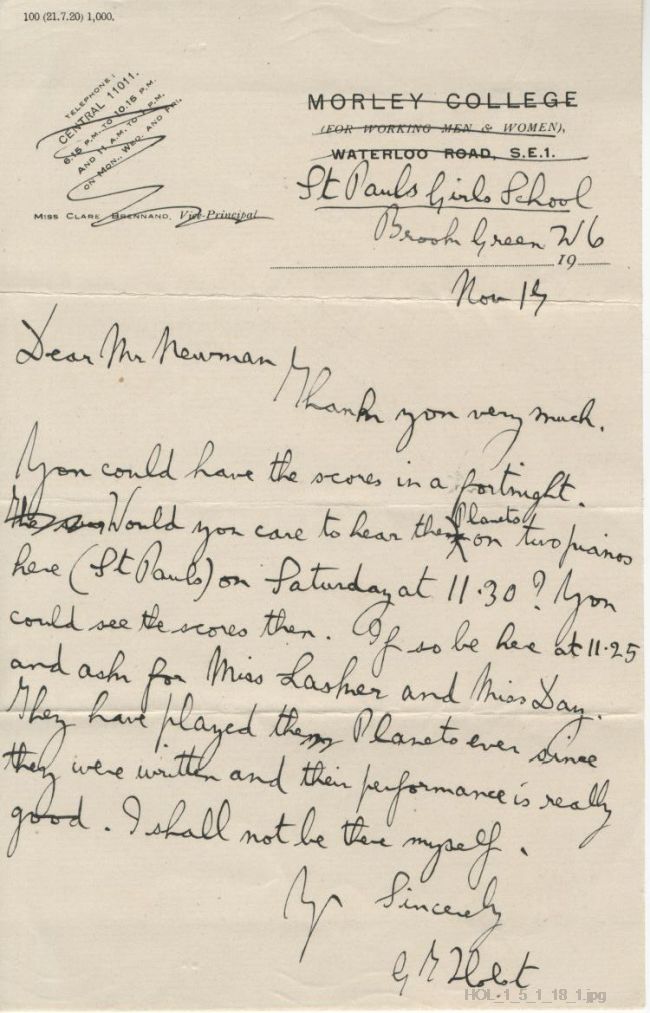 100 (21.7.20) 1,000.
TELEPHONE:
CENTRAL 11011.
6.15 P.M. TO 10.15 P.M.
AND 11 A.M. TO 1 P.M.
ON MON., WED. AND FRI.
MISS CLARE BRENNAND, Vice-Principal
MORLEY COLLEGE
(FOR WORKING MEN & WOMEN),
WATERLOO ROAD, S.E.1.
St Pauls Girls School
Brook Green W6
19
Nov
Dear Mr Newman
Thank you very much.
You could have the scores in a fortnight.
Would you care to hear the Planets on two pianos
here (St Pauls) on Saturday at 11.30? You
could see the scores then. If so be here at 11.25
and ask for Miss Lasker and Miss Day.
They have played the Planets ever since
they were written and their performance is really
good. I shall not be there myself.
Yrs Sincerely
G T Holst
HOL_1_5_1_18_1.jpg